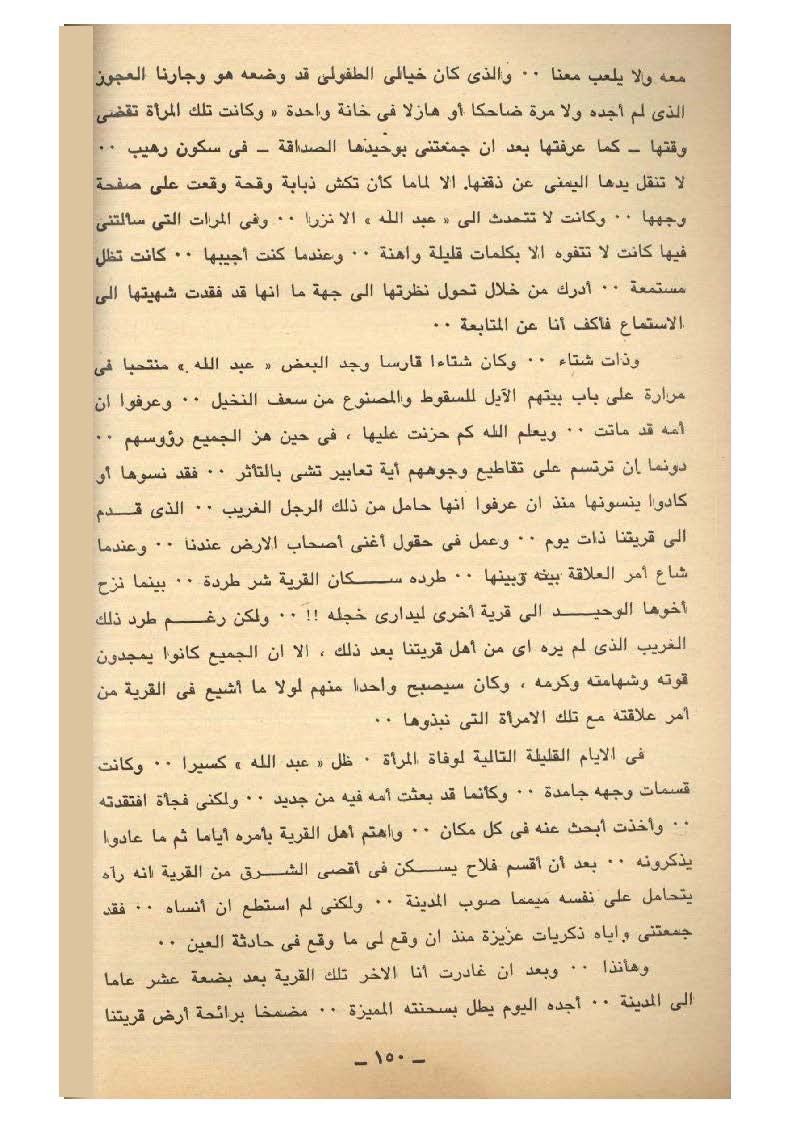 معه ولا يلعب معنا ٠٠ والذى كان خيالى الطفولى قد وضعه هو وجارنا العجوز
الذى لم أجده ولا مرة ضاحكا أو هازلا فى خانة واحدة « وكانت تلك المرأة تقضى
وقتها ــ كما عرفتها بعد ان جمعتنى بوحيدها الصداقة ــ فى سكون رهيب ٠٠
لا تنقل يدها اليمنى عن ذقنها. الا لماما كأن تكش ذبابة وقحة وقعت على صفحة
وجهها ٠٠ وكانت لا تتحدث الى « عبد الله » الا نزرا ٠٠ وفى المرات التى سألتنى
فيها كانت لا تتفوه الا بكلمات قليلة واهنة ٠٠ وعندما كنت أجيبها ٠٠ كانت تظل
مستمعة ٠٠ أدرك من خلال تحول نظرتها الى جهة ما انها قد فقدت شهيتها الى
الاستماع فأكف أنا عن المتابعة ٠٠
وذات شتاء ٠٠ وكان شتاءا قارسا وجد البعض « عبد الله » منتحبا فى
مرارة على باب بيتهم الآيل للسقوط والمصنوع من سعف النخيل ٠٠ وعرفوا ان
أمه قد ماتت ٠٠ ويعلم الله كم حزنت عليها ، فى حين هز الجميع رؤوسهم ٠٠
دونما ان ترتسم على تقاطيع وجوههم أية تعابير تشى بالتأثر ٠٠ فقد نسوها أو
كادوا ينسونها منذ ان عرفوا انها حامل من ذلك الرجل الغريب ٠٠ الذى قـــدم
الى قريتنا ذات يوم ٠٠ وعمل فى حقول أغنى أصحاب الارض عندنا ٠٠ وعندما
شاع أمر العلاقة بينه وبينها ٠٠ طرده ســـكان القرية شر طردة ٠٠ بينما نزح
أخوها الوحيـــد الى قرية أخرى ليدارى خجله !! ٠٠ ولكن رغـــم طرد ذلك
الغريب الذى لم يره اى من أهل قريتنا بعد ذلك ، الا ان الجميع كانوا يمجدون
قوته وشهامته وكرمه ، وكان سيصبح واحدا منهم لولا ما أشيع فى القرية من
أمر علاقته مع تلك الامرأة التى نبذوها ٠٠
فى الايام القليلة التالية لوفاة المرأة ٠ ظل « عبد الله » كسيرا ٠٠ وكانت
قسمات وجهه جامدة ٠٠ وكأنما قد بعثت أمه فيه من جديد ٠٠ ولكنى فجأة افتقدته
٠٠ وأخذت أبحث عنه فى كل مكان ٠٠ واهتم أهل القرية بأمره أياما ثم ما عادوا
يذكرونه ٠٠ بعد أن أقسم فلاح يســـكن فى أقصى الشـــرق من القرية انه رآه
يتحامل على نفسه ميمما صوب المدينة ٠٠ ولكنى لم استطع ان أنساه ٠٠ فقد
جمعتنى واياه ذكريات عزيزة منذ ان وقع لى ما وقع فى حادثة العين ٠٠
وهأنذا ٠٠ وبعد ان غادرت أنا الاخر تلك القرية بعد بضعة عشر عاما
الى المدينة ٠٠ أجده اليوم يطل بسحنته المميزة ٠٠ مضمخا برائحة أرض قريتنا
ــ ١٥٠ ــ